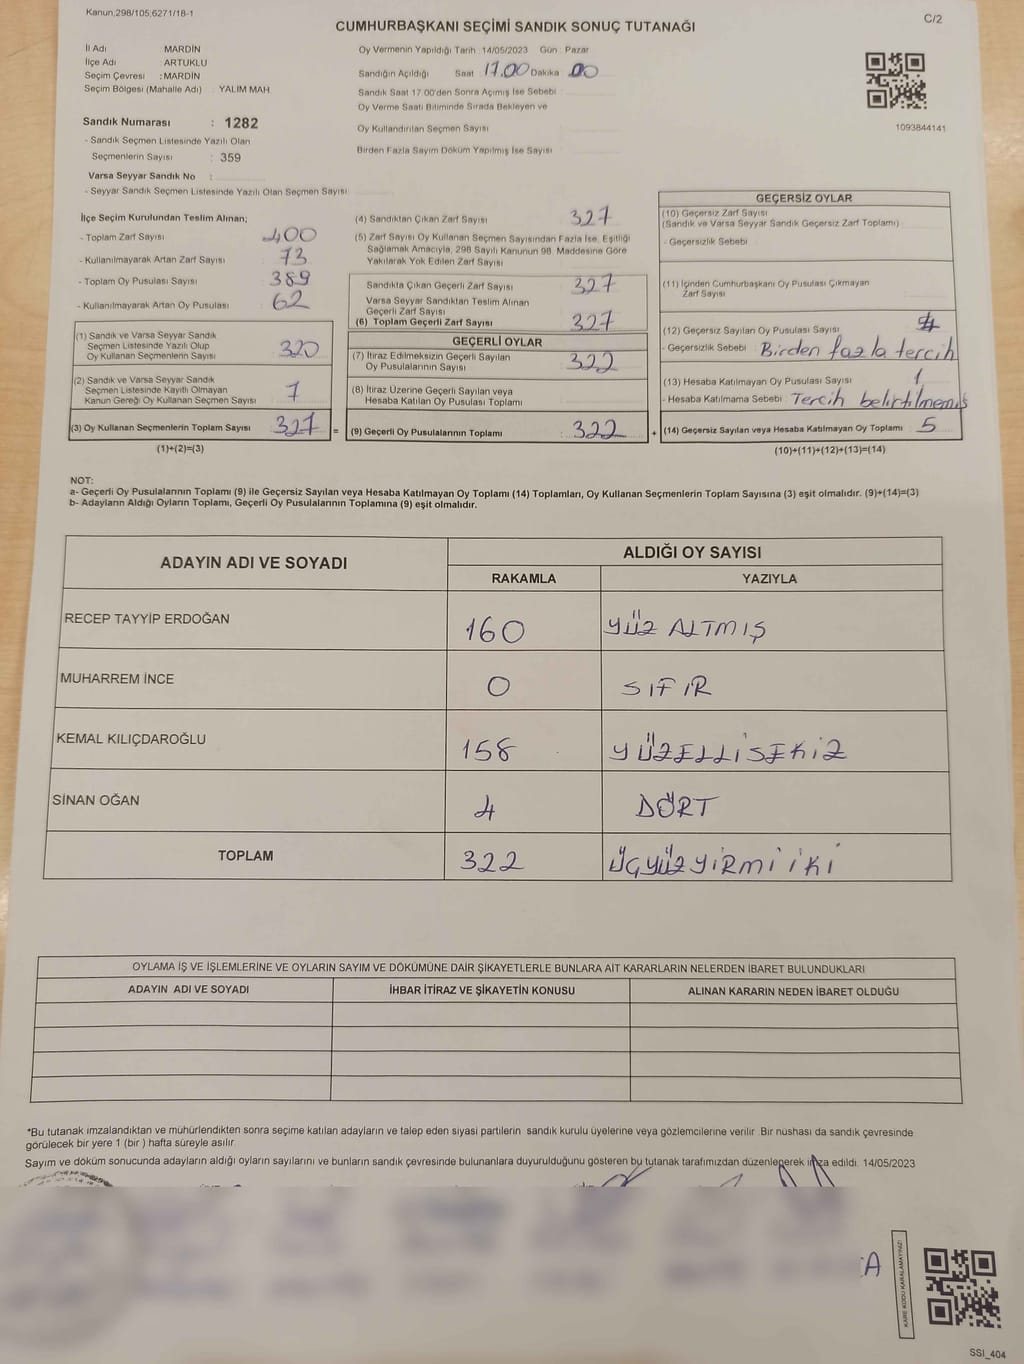 Kanun,298/105;6271/18-1
C/2
CUMHURBAŞKANI SEÇİMİ SANDIK SONUÇ TUTANAĞI
İl Adı MARDİN
İlçe Adı ARTUKLU
Seçim Çevresi : MARDİN
Seçim Bölgesi (Mahalle Adı) : YALIM MAH.
Oy Vermenin Yapıldığı Tarih :14/05/2023 Gün : Pazar
Sandığın Açıldığı Saat 17.00 Dakika 00
Sandık Saat 17:00'den Sonra Açımış İse Sebebi :
Oy Verme Saati Bitiminde Sırada Bekleyen ve
Oy Kullandırılan Seçmen Sayısı
Birden Fazla Sayım Döküm Yapılmış İse Sayısı
1093844141
Sandık Numarası : 1282
- Sandık Seçmen Listesinde Yazılı Olan
Seçmenlerin Sayısı : 359
Varsa Seyyar Sandık No :
- Seyyar Sandık Seçmen Listesinde Yazılı Olan Seçmen Sayısı
İlçe Seçim Kurulundan Teslim Alınan;
- Toplam Zarf Sayısı 400
- Kullanılmayarak Artan Zarf Sayısı 73
- Toplam Oy Pusulası Sayısı 389
- Kullanılmayarak Artan Oy Pusulası 62
(1) Sandık ve Varsa Seyyar Sandık
Seçmen Listesinde Yazılı Olup
Oy Kullanan Seçmenlerin Sayısı 320
(2) Sandık ve Varsa Seyyar Sandık
Seçmen Listesinde Kayıtlı Olmayan
Kanun Gereği Oy Kullanan Seçmen Sayısı 7
(3) Oy Kullanan Seçmenlerin Toplam Sayısı 327 =
(1)+(2)=(3)
(4) Sandıktan Çıkan Zarf Sayısı 327
(5) Zarf Sayısı Oy Kullanan Seçmen Sayısından Fazla İse, Eşitliği
Sağlamak Amacıyla, 298 Sayılı Kanunun 98. Maddesine Göre
Yakılarak Yok Edilen Zarf Sayısı
Sandıkta Çıkan Geçerli Zarf Sayısı 327
Varsa Seyyar Sandıktan Teslim Alınan
Geçerli Zarf Sayısı
(6) Toplam Geçerli Zarf Sayısı 327
GEÇERLİ OYLAR
(7) İtiraz Edilmeksizin Geçerli Sayılan
Oy Pusulasının Sayısı 322
(8) İtiraz Üzerine Geçerli Sayılan veya
Hesaba Katılan Oy Pusulası Toplamı
(9) Geçerli Oy Pusulalarının Toplamı : 322 +
GEÇERSİZ OYLAR
(10) Geçersiz Zarf Sayısı
(Sandık ve Varsa Seyyar Sandık Geçersiz Zarf Toplamı)
- Geçersizlik Sebebi
(11) İçinden Cumhurbaşkanı Oy Pusulası Çıkmayan
Zarf Sayısı
(12) Geçersiz Sayılan Oy Pusulası Sayısı 4
- Geçersizlik Sebebi Birden fazla tercih
(13) Hesaba Katılmayan Oy Pusulası Sayısı 1
- Hesaba Katılmama Sebebi : Tercih belirtilmemiş
(14) Geçersiz Sayılan veya Hesaba Katılmayan Oy Toplamı 5
(10)+(11)+(12)+(13)=(14)
NOT:
a- Geçerli Oy Pusulalarının Toplamı (9) ile Geçersiz Sayılan veya Hesaba Katılmayan Oy Toplamı (14) Toplamları, Oy Kullanan Seçmenlerin Toplam Sayısına (3) eşit olmalıdır. (9)+(14)=(3)
b- Adayların Aldığı Oyların Toplamı, Geçerli Oy Pusulalarının Toplamına (9) eşit olmalıdır.
ADAYIN ADI VE SOYADI
ALDIĞI OY SAYISI
RAKAMLA YAZIYLA
RECEP TAYYİP ERDOĞAN 160 YÜZ ALTMIŞ
MUHARREM İNCE 0 SIFIR
KEMAL KILIÇDAROĞLU 158 YÜZELLİSEKİZ
SİNAN OĞAN 4 DÖRT
TOPLAM 322 ÜÇYÜZYİRMİİKİ
OYLAMA İŞ VE İŞLEMLERİNE VE OYLARIN SAYIM VE DÖKÜMÜNE DAİR ŞİKAYETLERLE BUNLARA AİT KARARLARIN NELERDEN İBARET BULUNDUKLARI
ADAYIN ADI VE SOYADI İHBAR İTİRAZ VE ŞİKAYETİN KONUSU ALINAN KARARIN NEDEN İBARET OLDUĞU
*Bu tutanak imzalandıktan ve mühürlendikten sonra seçime katılan adayların ve talep eden siyasi partilerin sandık kurulu üyelerine veya gözlemcilerine verilir. Bir nüshası da sandık çevresinde
görülecek bir yere 1 (bir) hafta süreyle asılır.
Sayım ve döküm sonucunda adayların aldığı oyların sayılarını ve bunların sandık çevresinde bulunanlara duyurulduğunu gösteren bu tutanak tarafımızdan düzenlenerek imza edildi. 14/05/2023
KARE KODU KARALAMAYINIZ!
SSI_404